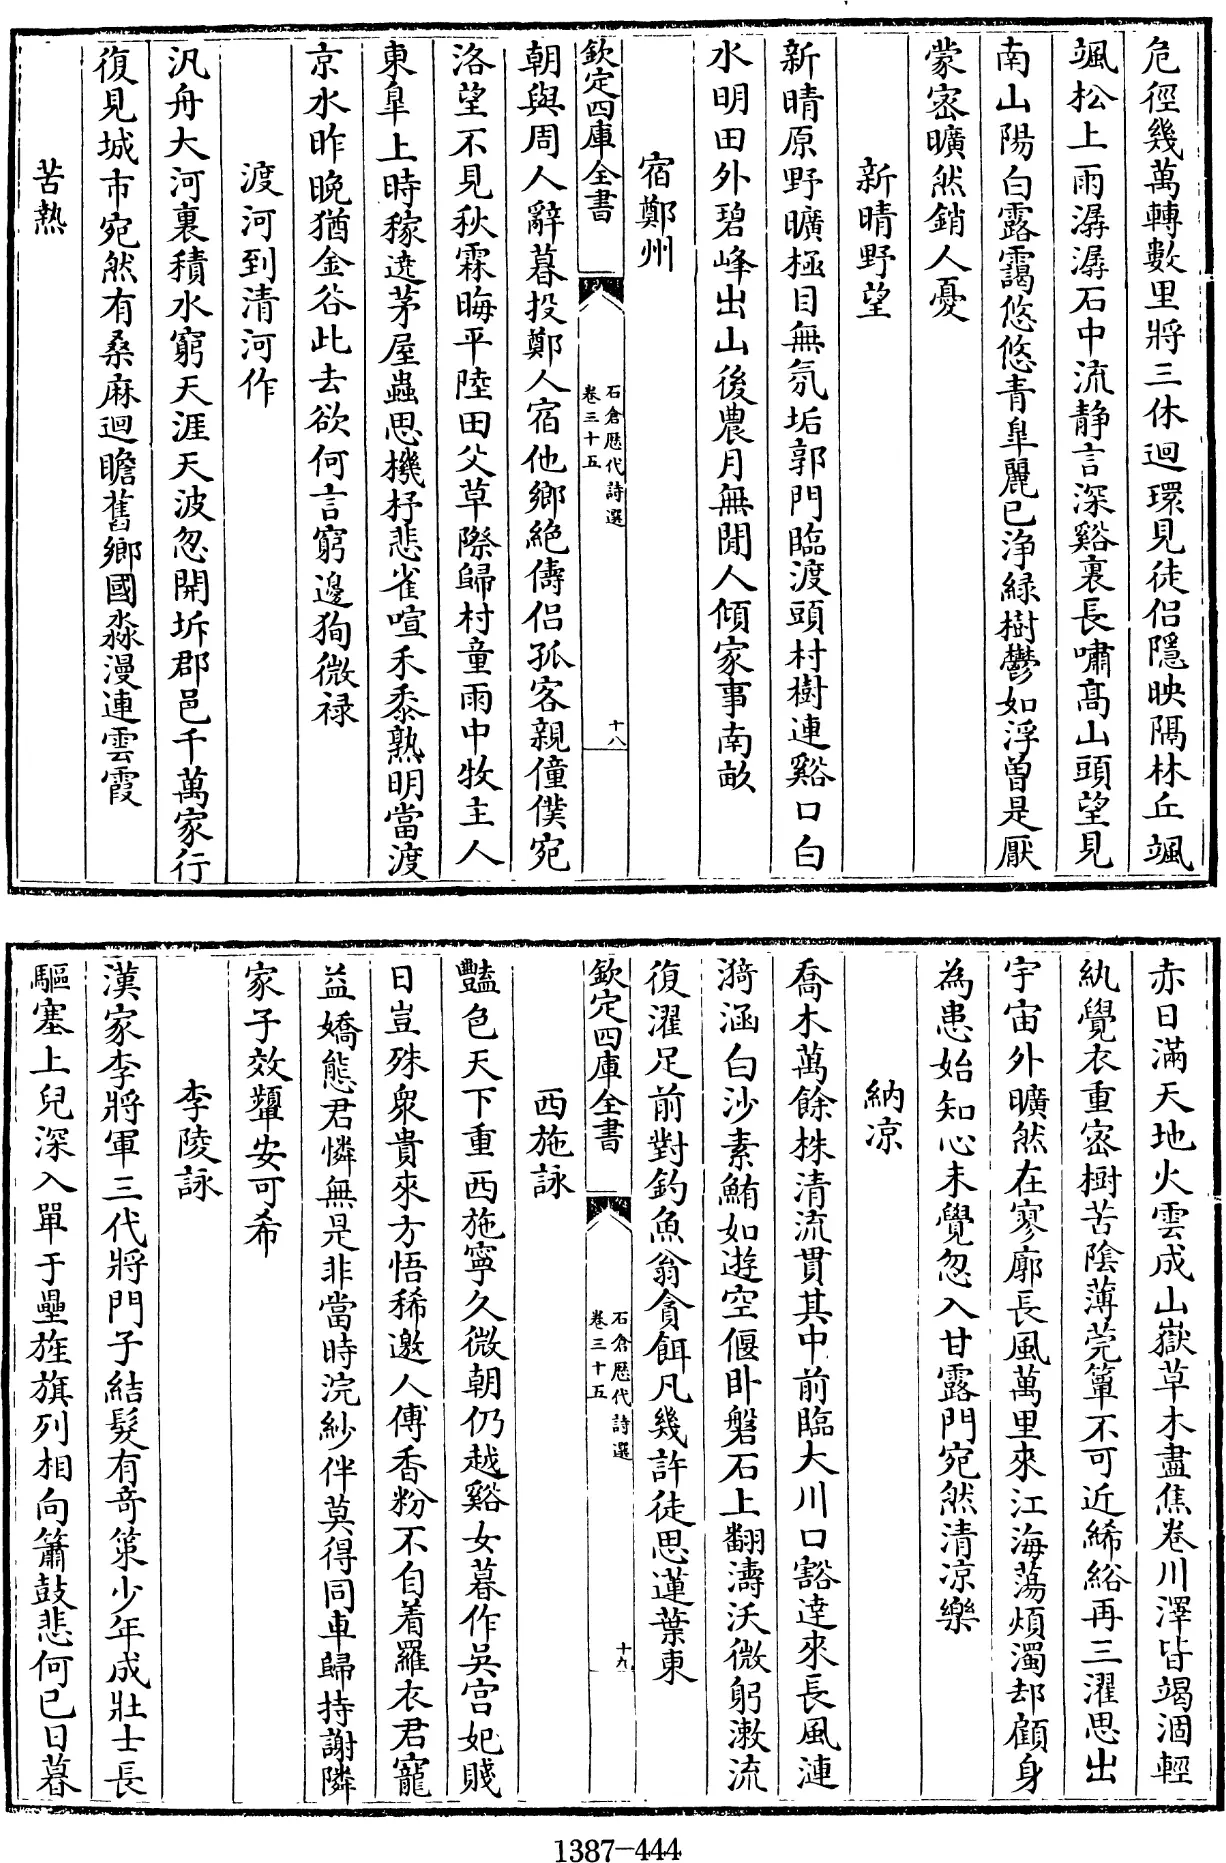 危徑幾萬轉數里將三休迴環見徒侶隱映隔林丘颯
颯松上雨潺潺石中流静言深谿裏長嘯髙山頭望見
南山陽白露靄悠悠青臯麗已浄緑樹鬱如浮曽是厭
蒙宻曠然銷人憂
新晴野望
新晴原野曠極目無氛垢郭門臨渡頭村樹連谿口白
水明田外碧峰出山後農月無閒人傾家事南畝
宿鄭州
欽定四庫全書
石倉歴代詩選
卷三十五
十八
朝與周人辭暮投鄭人宿他鄉絶儔侣孤客親僮僕宛
洛望不見秋霖晦平陸田父草際歸村童雨中牧主人
東臯上時稼遶茅屋蟲思機杼悲雀喧禾黍熟明當渡
京水昨晚猶金谷此去欲何言窮邊狥微禄
渡河到清河作
汎舟大河裏積水窮天涯天波忽開坼郡邑千萬家行
復見城市宛然有桑麻迴瞻舊鄉國淼漫連雲霞
苦熱
赤日滿天地火雲成山嶽草木盡焦卷川澤皆竭涸輕
紈覺衣重宻樹苦陰薄莞簟不可近絺綌再三濯思出
宇宙外曠然在寥廓長風萬里來江海蕩煩濁却顧身
為患始知心未覺忽入甘露門宛然清涼樂
納凉
喬木萬餘株清流貫其中前臨大川口豁達來長風漣
漪涵白沙素鮪如遊空偃卧磐石上翻濤沃微躬漱流
復濯足前對釣魚翁貪餌凡幾許徒思蓮葉東
欽定四庫全書
石倉歴代詩選
卷三十五
十九
西施詠
豔色天下重西施寧久微朝仍越谿女暮作吳宫妃賤
日豈殊衆貴來方悟稀邀人傅香粉不自着羅衣君寵
益嬌態君憐無是非當時浣紗伴莫得同車歸持謝隣
家子效顰安可希
李陵詠
漢家李將軍三代將門子結髮有竒策少年成壯士長
驅塞上兒深入單于壘旌旗列相向簫鼓悲何已日暮
1387-444